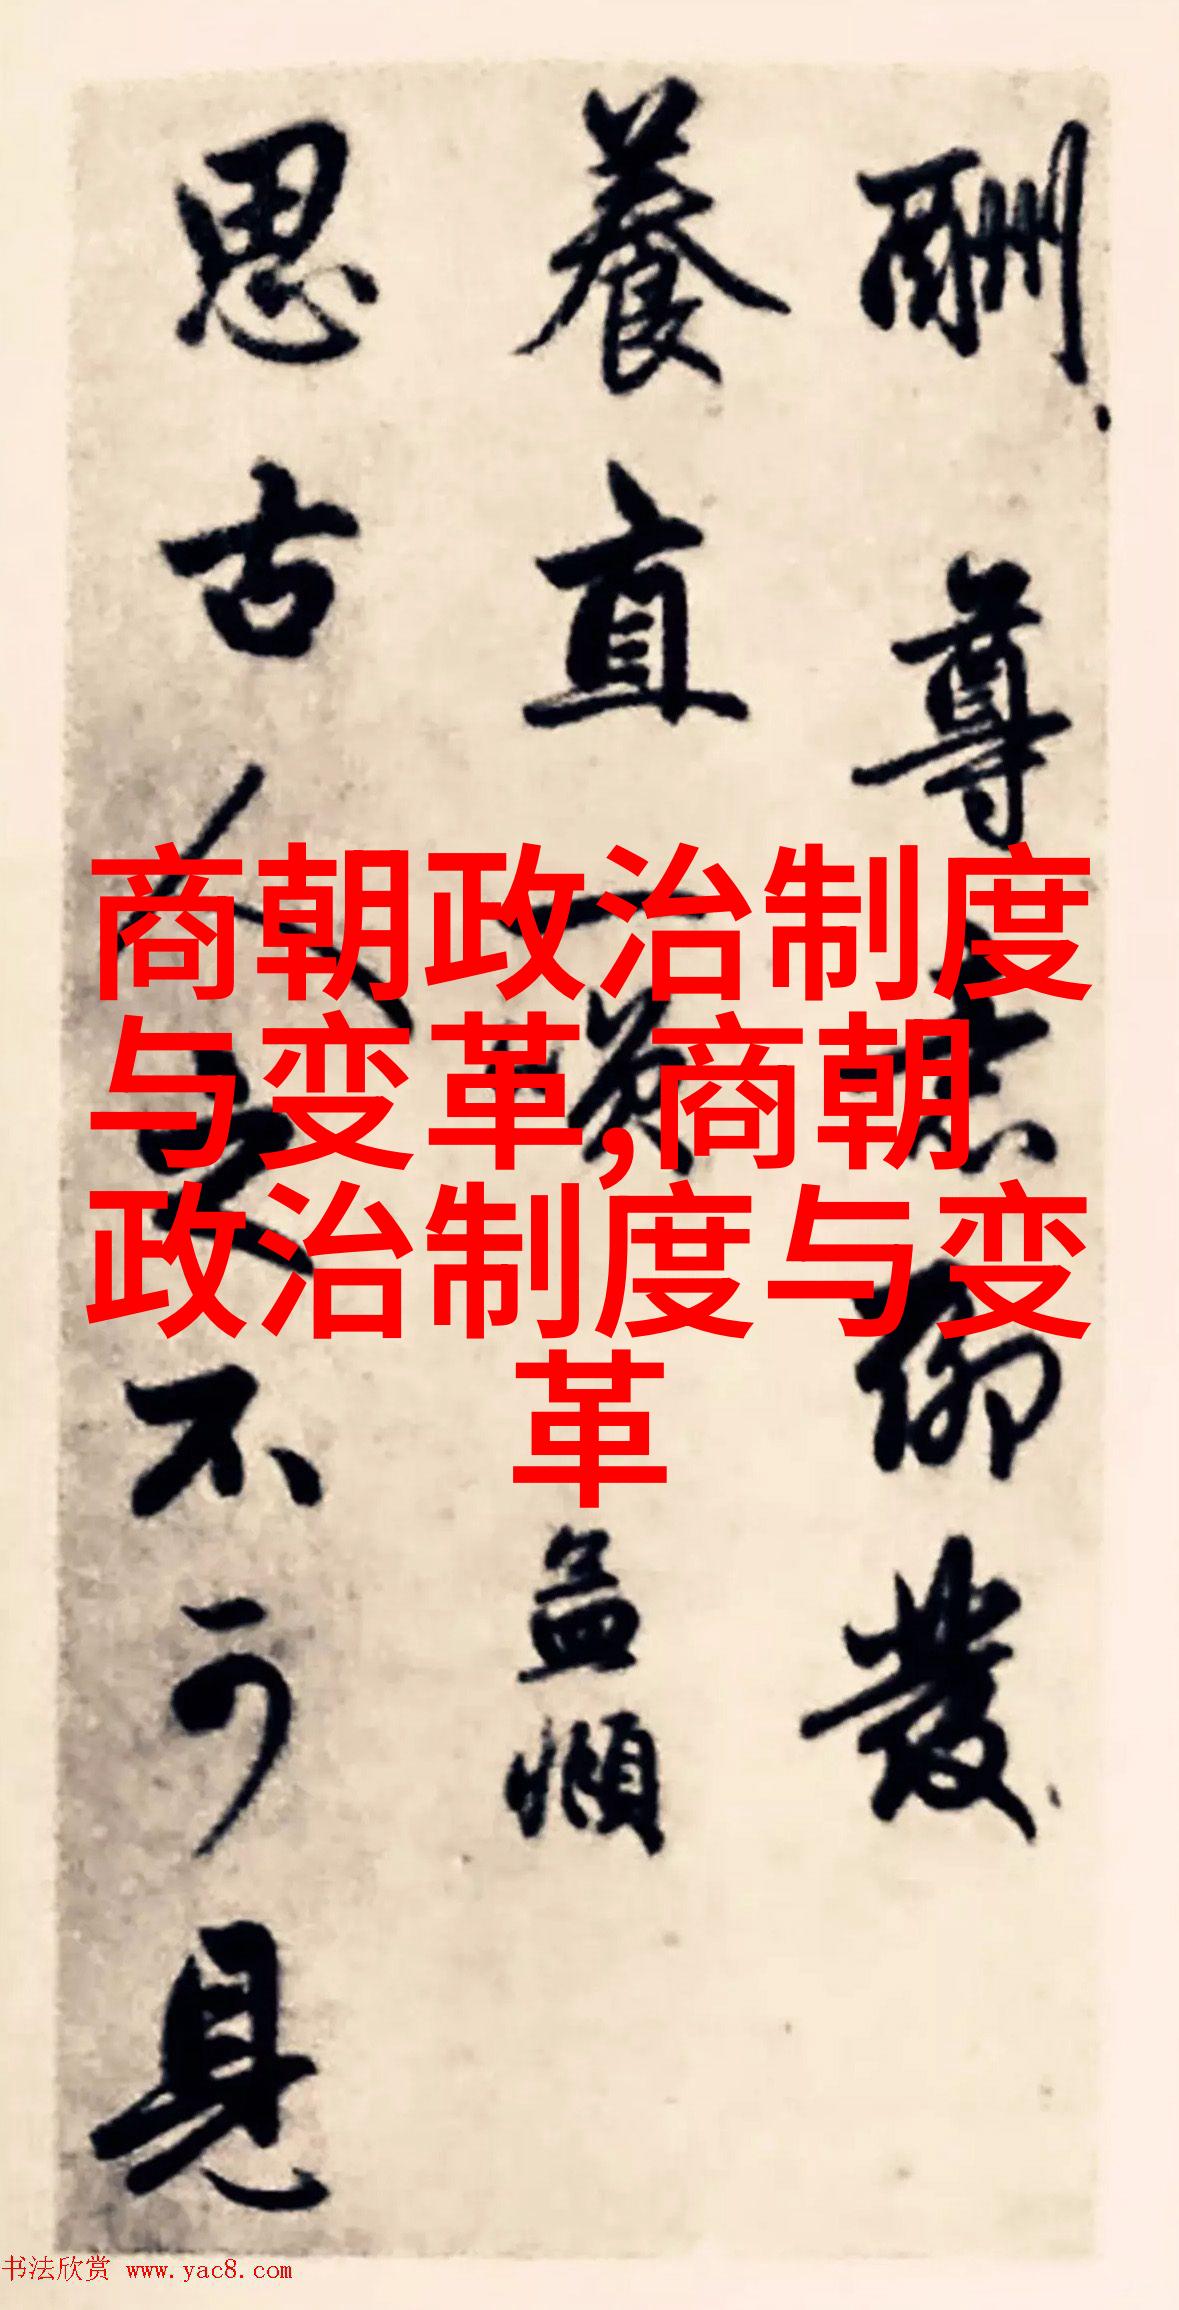 酬尊意聊發
養直一頌
孟頫
思古人之不可見
商朝政治制度
与变革,商朝
政治制度与变
革
书法欣赏 www.yac8.com